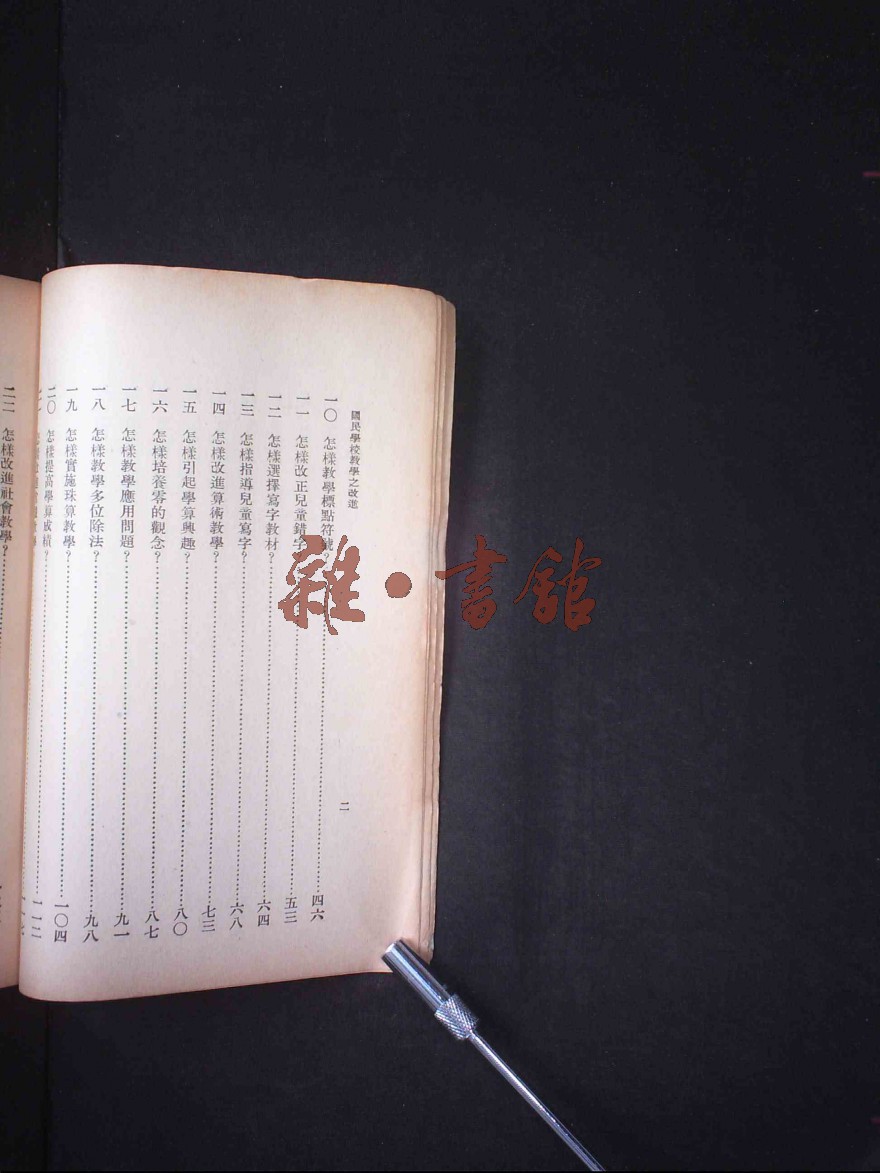 國民學校教學之改進
二
一〇 怎樣教學標點符號？……四六
一一 怎樣改正兒童錯字……五三
一二 怎樣選擇寫字教材？……六四
一三 怎樣指導兒童寫字？……六八
一四 怎樣改進算術教學？……七三
一五 怎樣引起學算興趣？……八〇
一六 怎樣培養零的觀念？……八七
一七 怎樣教學應用問題？……九一
一八 怎樣教學多位除法？……九八
一九 怎樣實施珠算教學？……一〇四
二〇 怎樣提高學算成績？……一一二
二二 怎樣改進社會教學？……
雜·書館